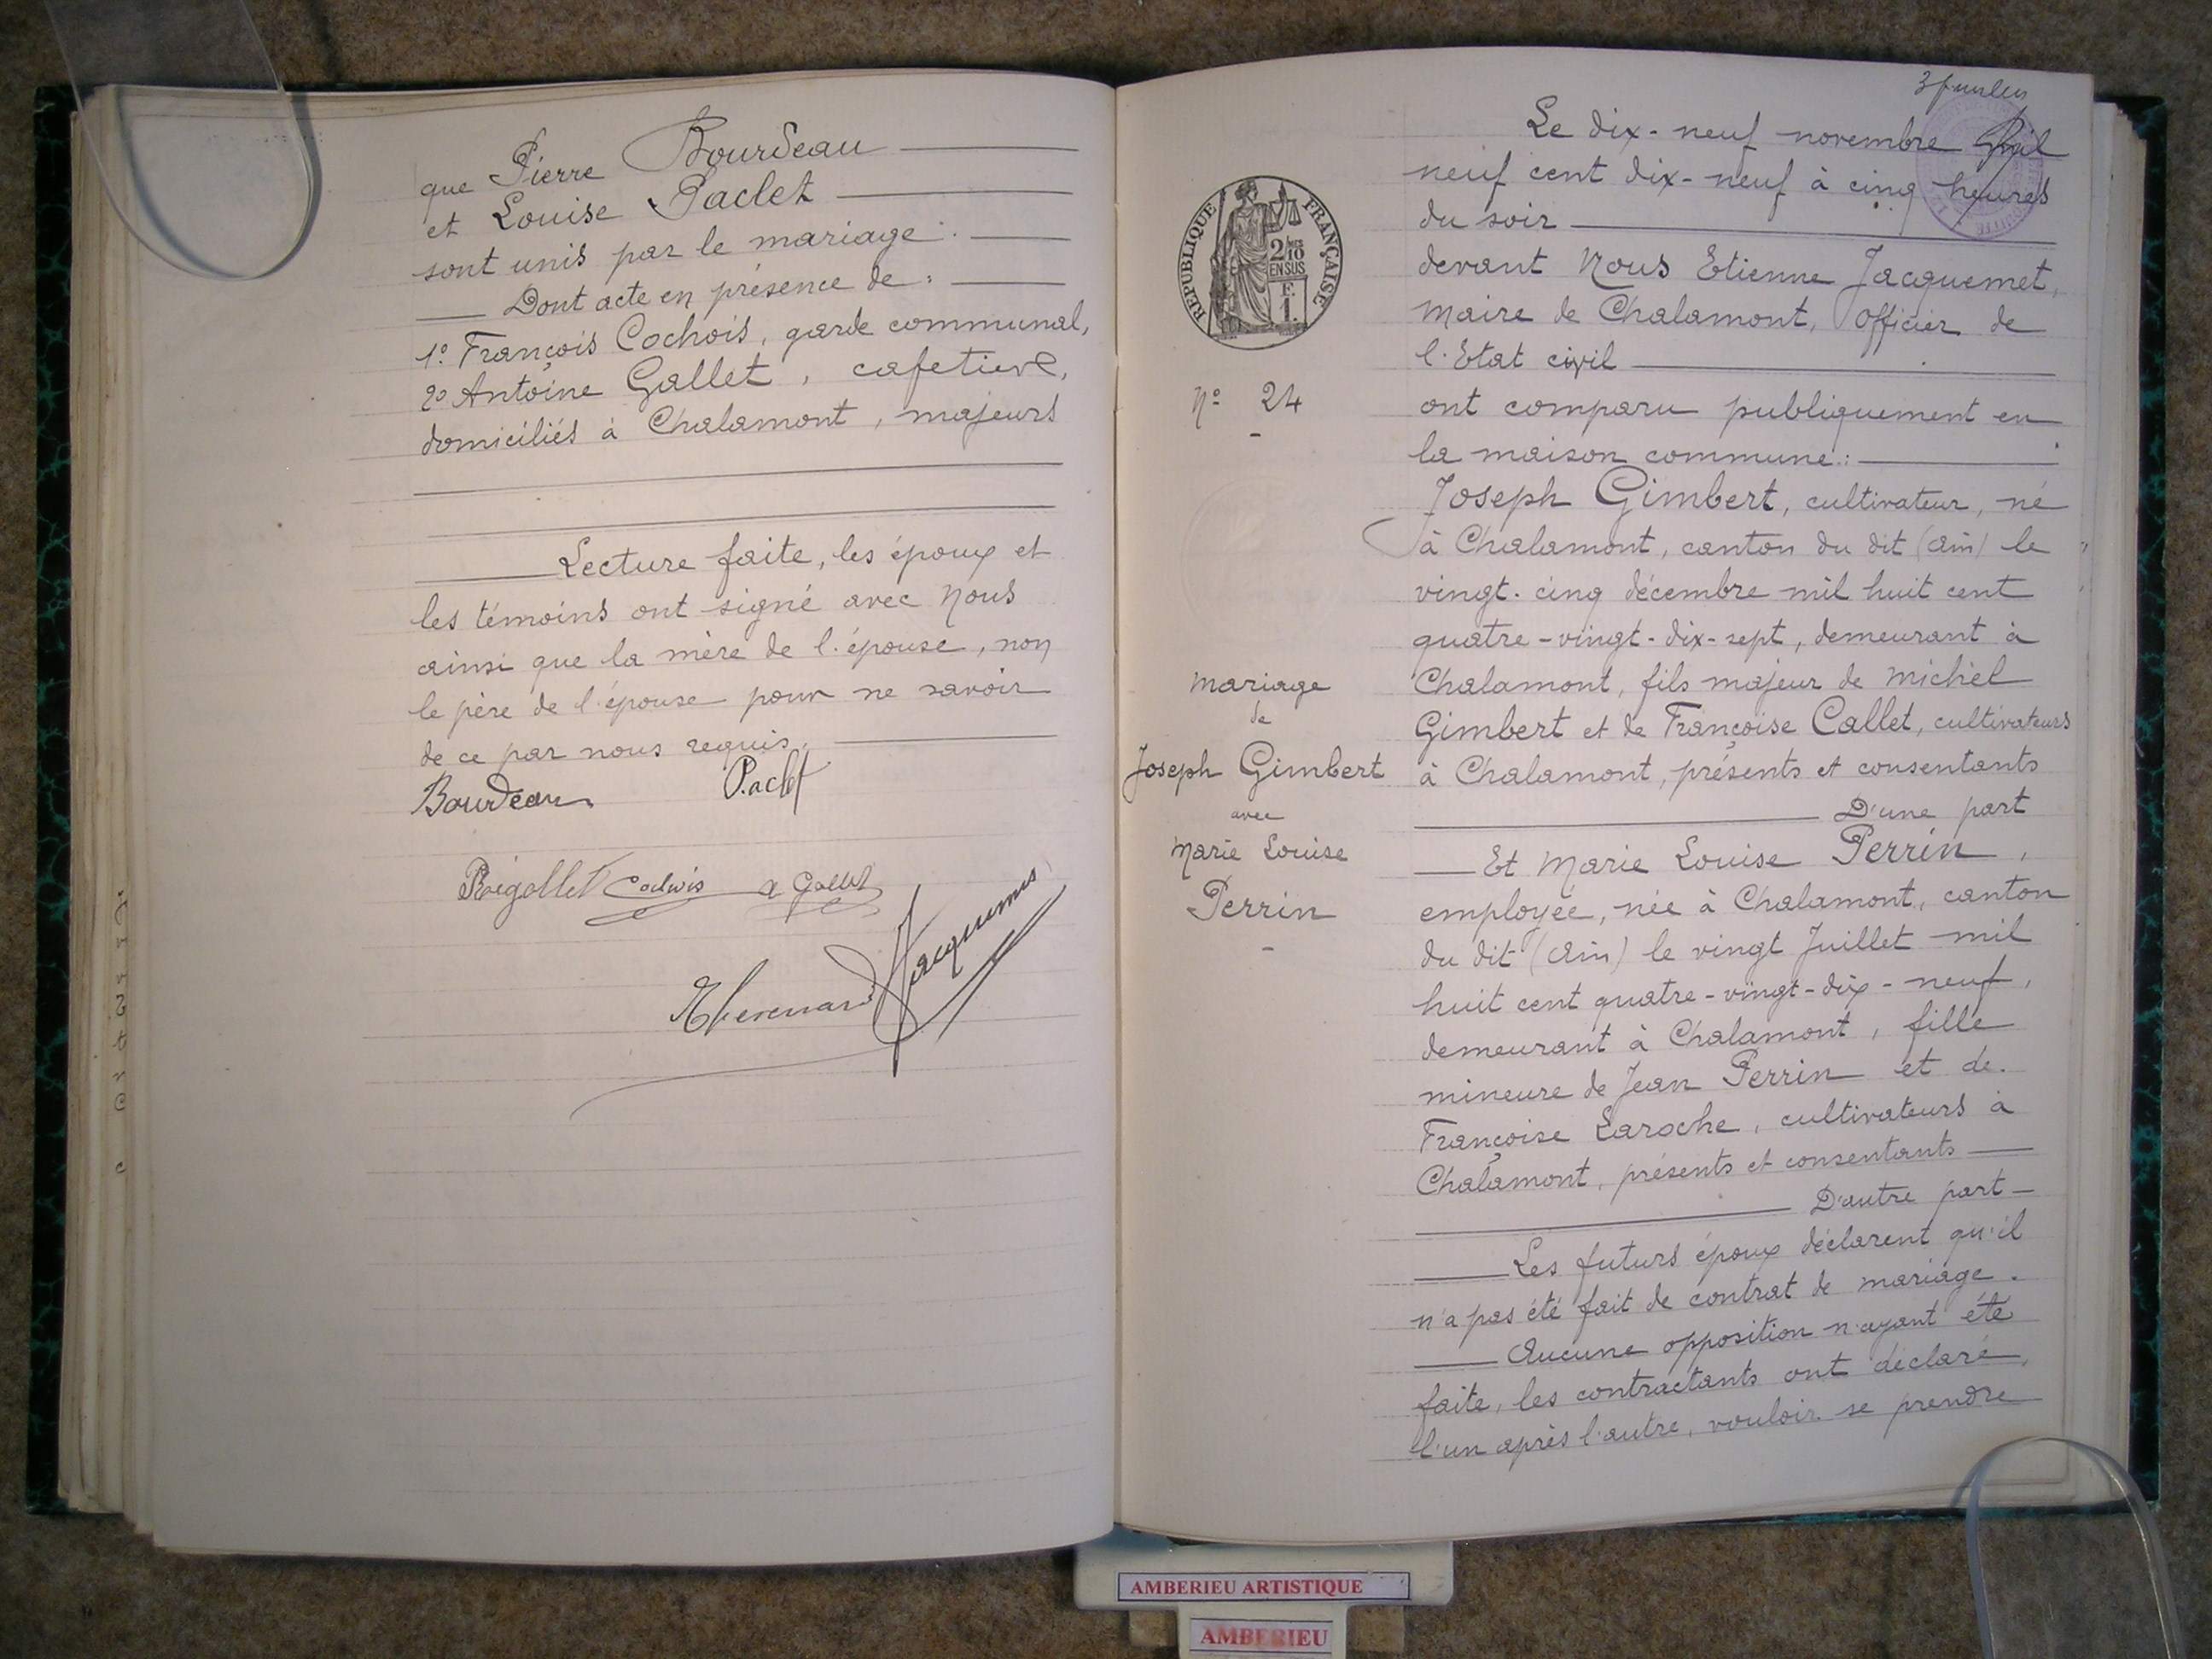 que Pierre Bourdeau
et Louise Paclet
sont unis par le mariage.
Dont acte en présence de :
1º François Cochois, garde communal,
2º Antoine Gallet, cafetier,
domiciliés à Chalamont, majeurs
Lecture faite, les époux et
les témoins ont signé avec Nous
ainsi que la mère de l'épouse, non
le père de l'épouse pour ne savoir
de ce par nous requis.
Bourdeau Paclet
Rigollet Cochois A Gallet
Thevenard Jacquemet
Le dix-neuf novembre Mil
neuf cent dix-neuf à cinq heures
du soir
REPUBLIQUE FRANÇAISE
2/10
EN SUS
F.
1.
devant Nous Etienne Jacquemet,
Maire de Chalamont, Officier de
l'Etat civil
Nº 24
ont comparu publiquement en
la maison commune :
Joseph Gimbert, cultivateur, né
à Chalamont, canton du dit (Ain) le
vingt-cinq décembre mil huit cent
quatre-vingt-dix-sept, demeurant à
Chalamont, fils majeur de Michel
Gimbert et de Françoise Callet, cultivateurs
à Chalamont, présents et consentants
D'une part
Mariage
de
Joseph Gimbert
avec
Marie Louise
Perrin
Et Marie Louise Perrin,
employée, née à Chalamont, canton
du dit (Ain) le vingt Juillet mil
huit cent quatre-vingt-dix-neuf,
demeurant à Chalamont, fille
mineure de Jean Perrin et de
Françoise Laroche, cultivateurs à
Chalamont, présents et consentants
D'autre part
Les futurs époux déclarent qu'il
n'a pas été fait de contrat de mariage.
Aucune opposition n'ayant été
faite, les contractants ont déclaré,
l'un après l'autre, vouloir se prendre
AMBERIEU ARTISTIQUE
AMBERIEU